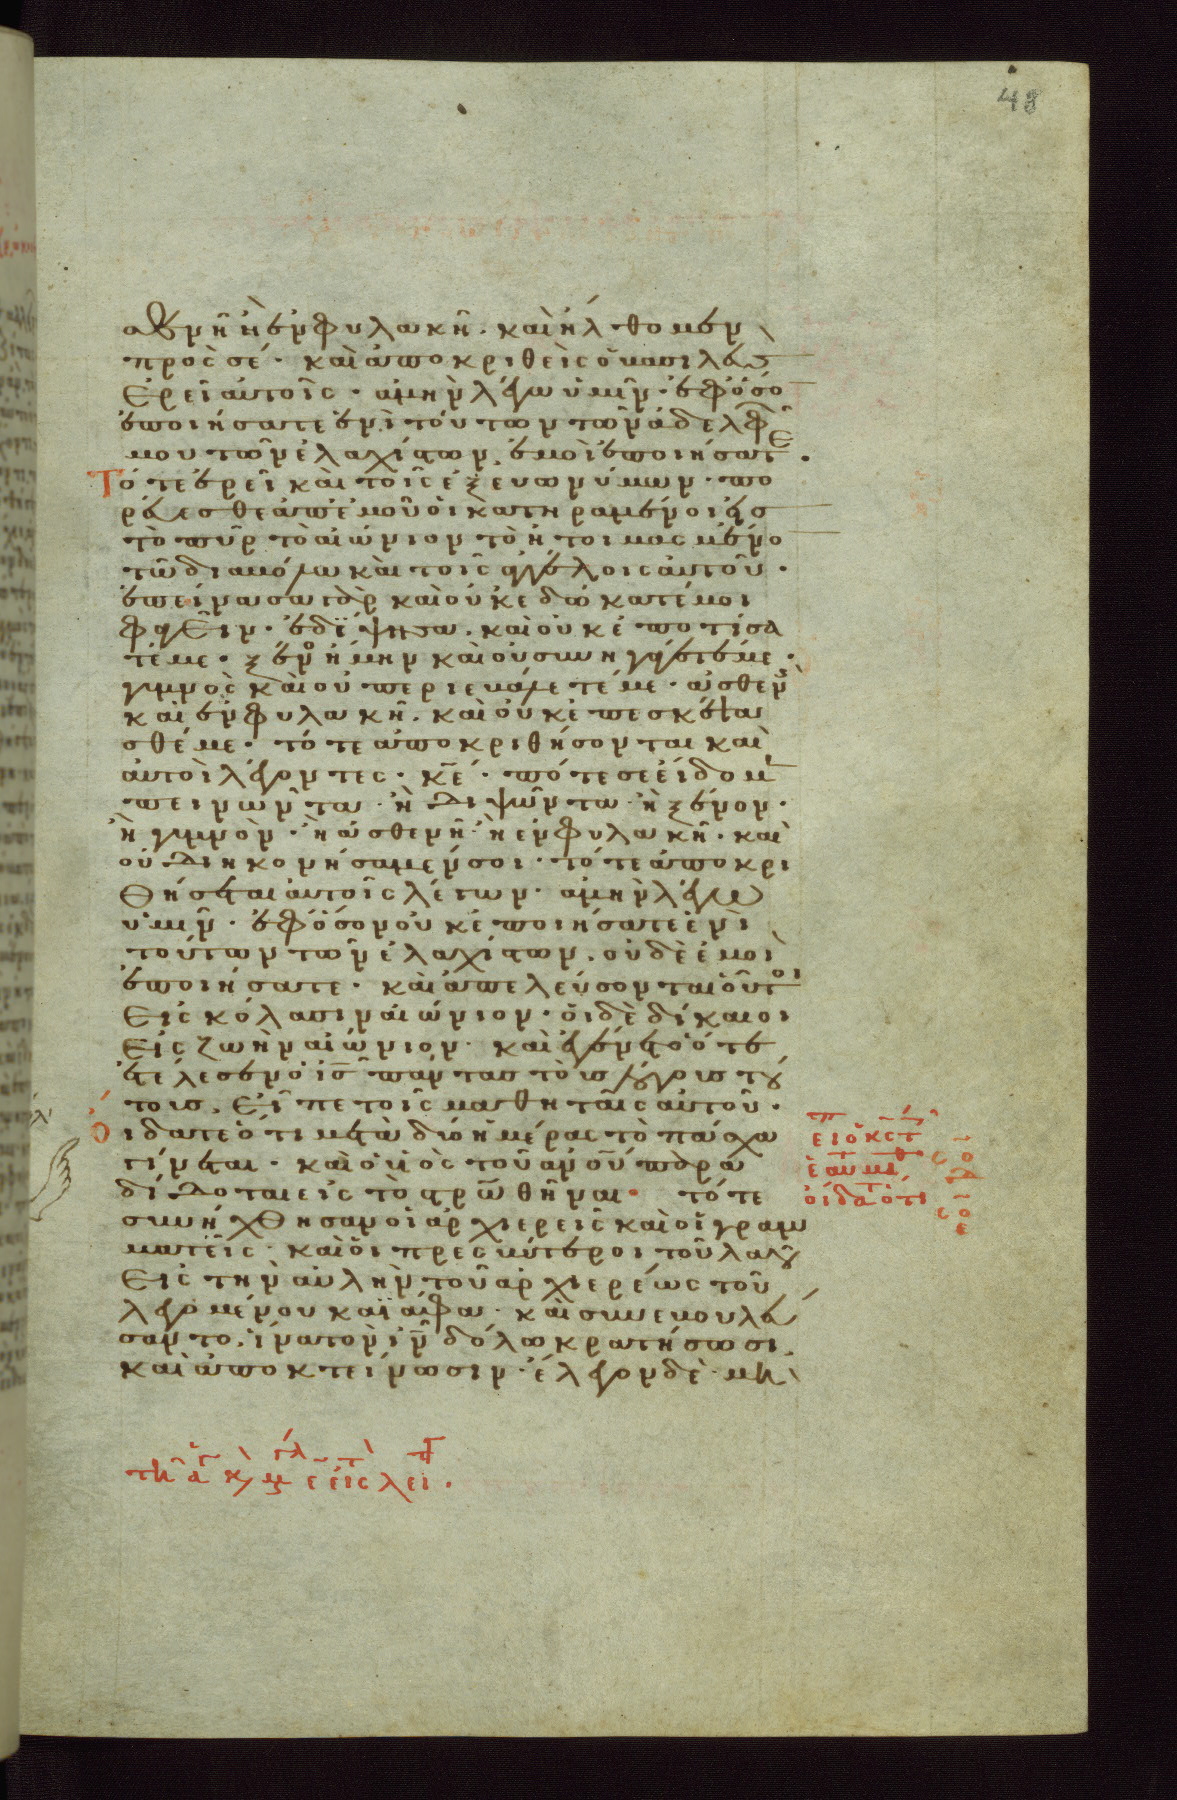 48
ασθενῆ ἢ ἐν φυλακῆ. καὶ ἤλθομεν
πρὸς σέ. καὶ ἀποκριθεὶς ὁ βασιλεὺς
ἐρεῖ αὐτοῖς. ἀμὴν λέγω ὑμῖν. ἐφ ὅσο
ἐποιήσατε ἑνὶ τούτων τῶν ἀδελφῶ
μου τῶν ἐλαχίστων, ἐμοὶ ἐποιήσατε.
Τότε ἐρεῖ καὶ τοῖς ἐξ εὐωνύμων. πο
ρεύεσθε ἀπ ἐμοῦ οἱ κατηραμένοι εἰς
τὸ πῦρ τὸ αἰώνιον τὸ ἡτοιμασμένο
τῶ διαβόλω καὶ τοῖς ἀγγέλοις αὐτοῦ.
ἐπείνασα γὰρ καὶ οὐκ ἐδώκατέ μοι
φαγεῖν. ἐδίψησα. καὶ οὐκ ἐποτίσα
τέ με. ξένος ἤμην καὶ οὐ συνηγάγετέ με.
γυμνὸς καὶ οὐ περιεβάλετέ με. ἀσθενὴς
καὶ ἐν φυλακῆ. καὶ οὐκ ἐπεσκέψα
σθέ με. τότε ἀποκριθήσονται καὶ
αὐτοὶ λέγοντες. κε. πότε σε εἴδομεν
πεινῶντα. ἢ διψῶντα. ἢ ξένον.
ἢ γυμνὸν. ἢ ἀσθενῆ. ἢ ἐν φυλακῆ. καὶ
οὐ διηκονήσαμέν σοι. τότε ἀποκρι
θήσεται αὐτοῖς λέγων. ἀμὴν λέγω
ὑμῖν. ἐφ ὅσον οὐκ ἐποιήσατε ἑνὶ
τούτων τῶν ἐλαχίστων, οὐδὲ ἐμοὶ
ἐποιήσατε. καὶ ἀπελεύσονται οὗτοι
εἰς κόλασιν αἰώνιον. οἱ δὲ δίκαιοι
εἰς ζωὴν αἰώνιον. καὶ ἐγένετο ὅτε
ἐτέλεσεν ὁ ις πάντας τοὺς λόγους τού
τους, εἶπε τοῖς μαθηταῖς αὐτοῦ.
Οἴδατε ὅτι μετὰ δύο ἡμέρας τὸ πάσχα
γίνεται. καὶ ὁ υἱὸς τοῦ ανου παρα
δίδοται εἰς τὸ σταυρωθῆναι. τότε
συνήχθησαν οἱ ἀρχιερεῖς καὶ οἱ γραμ
ματεῖς. καὶ οἱ πρεσβύτεροι τοῦ λαοῦ
εἰς τὴν αὐλὴν τοῦ ἀρχιερέως τοῦ
λεγομένου καϊάφα. καὶ συνεβουλεύ
σαντο, ἵνα τὸν ιν δόλω κρατήσωσι,
καὶ ἀποκτείνωσιν. ἔλεγον δὲ. μὴ